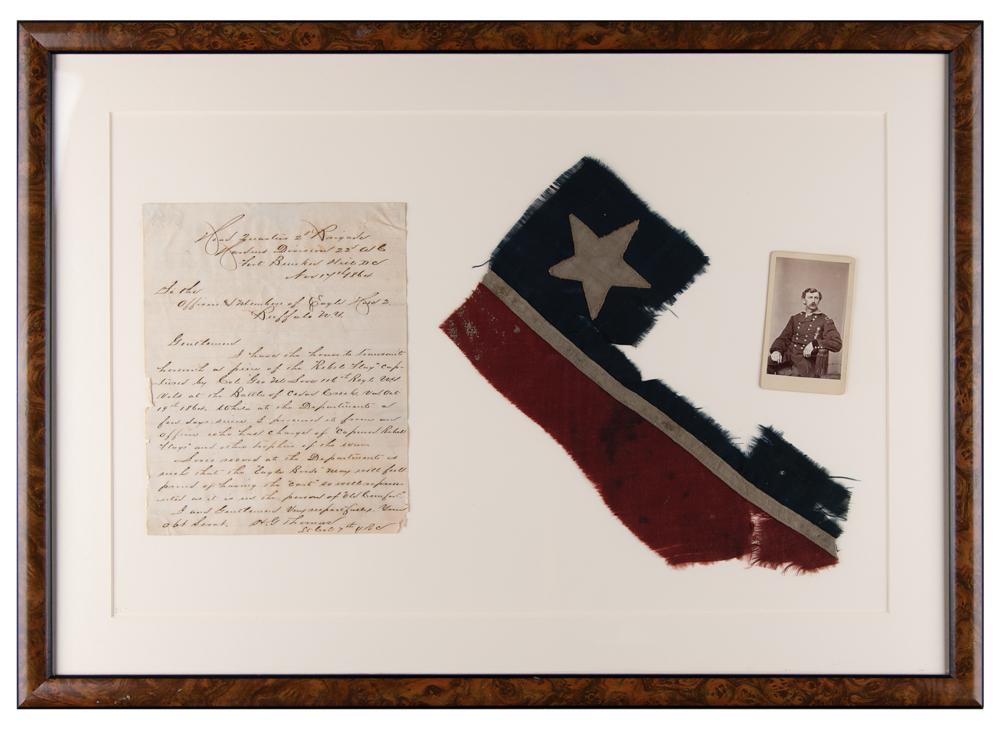 Head Quarters 2d Brigade
Hardins Division 22d A C
Fort Bunker Hill D C
Nov 17th 1864
To the
Officers & Members of Eagle Hose 2
Buffalo N.Y.
Gentlemen
I have the honor to transmit
herewith a piece of the Rebel "flag" cap-
tured by Col. Geo M. Love 116th Regt NY
Vols at the Battle of Cedar Creek, Va Oct
19th 1864. While at the Department a
few days since, I procured it from an
Officer who has charge of "Captured Rebel
flags" and other trophies of the war
Loves record at the Department is
such that the "Eagle Birds" may well feel
proud of having the "East" so well repre-
sented as it is in the person of
I am Gentlemen Very respectfully Your
Obt Servt. H. G. Thomas
Lt Col 7th V R C